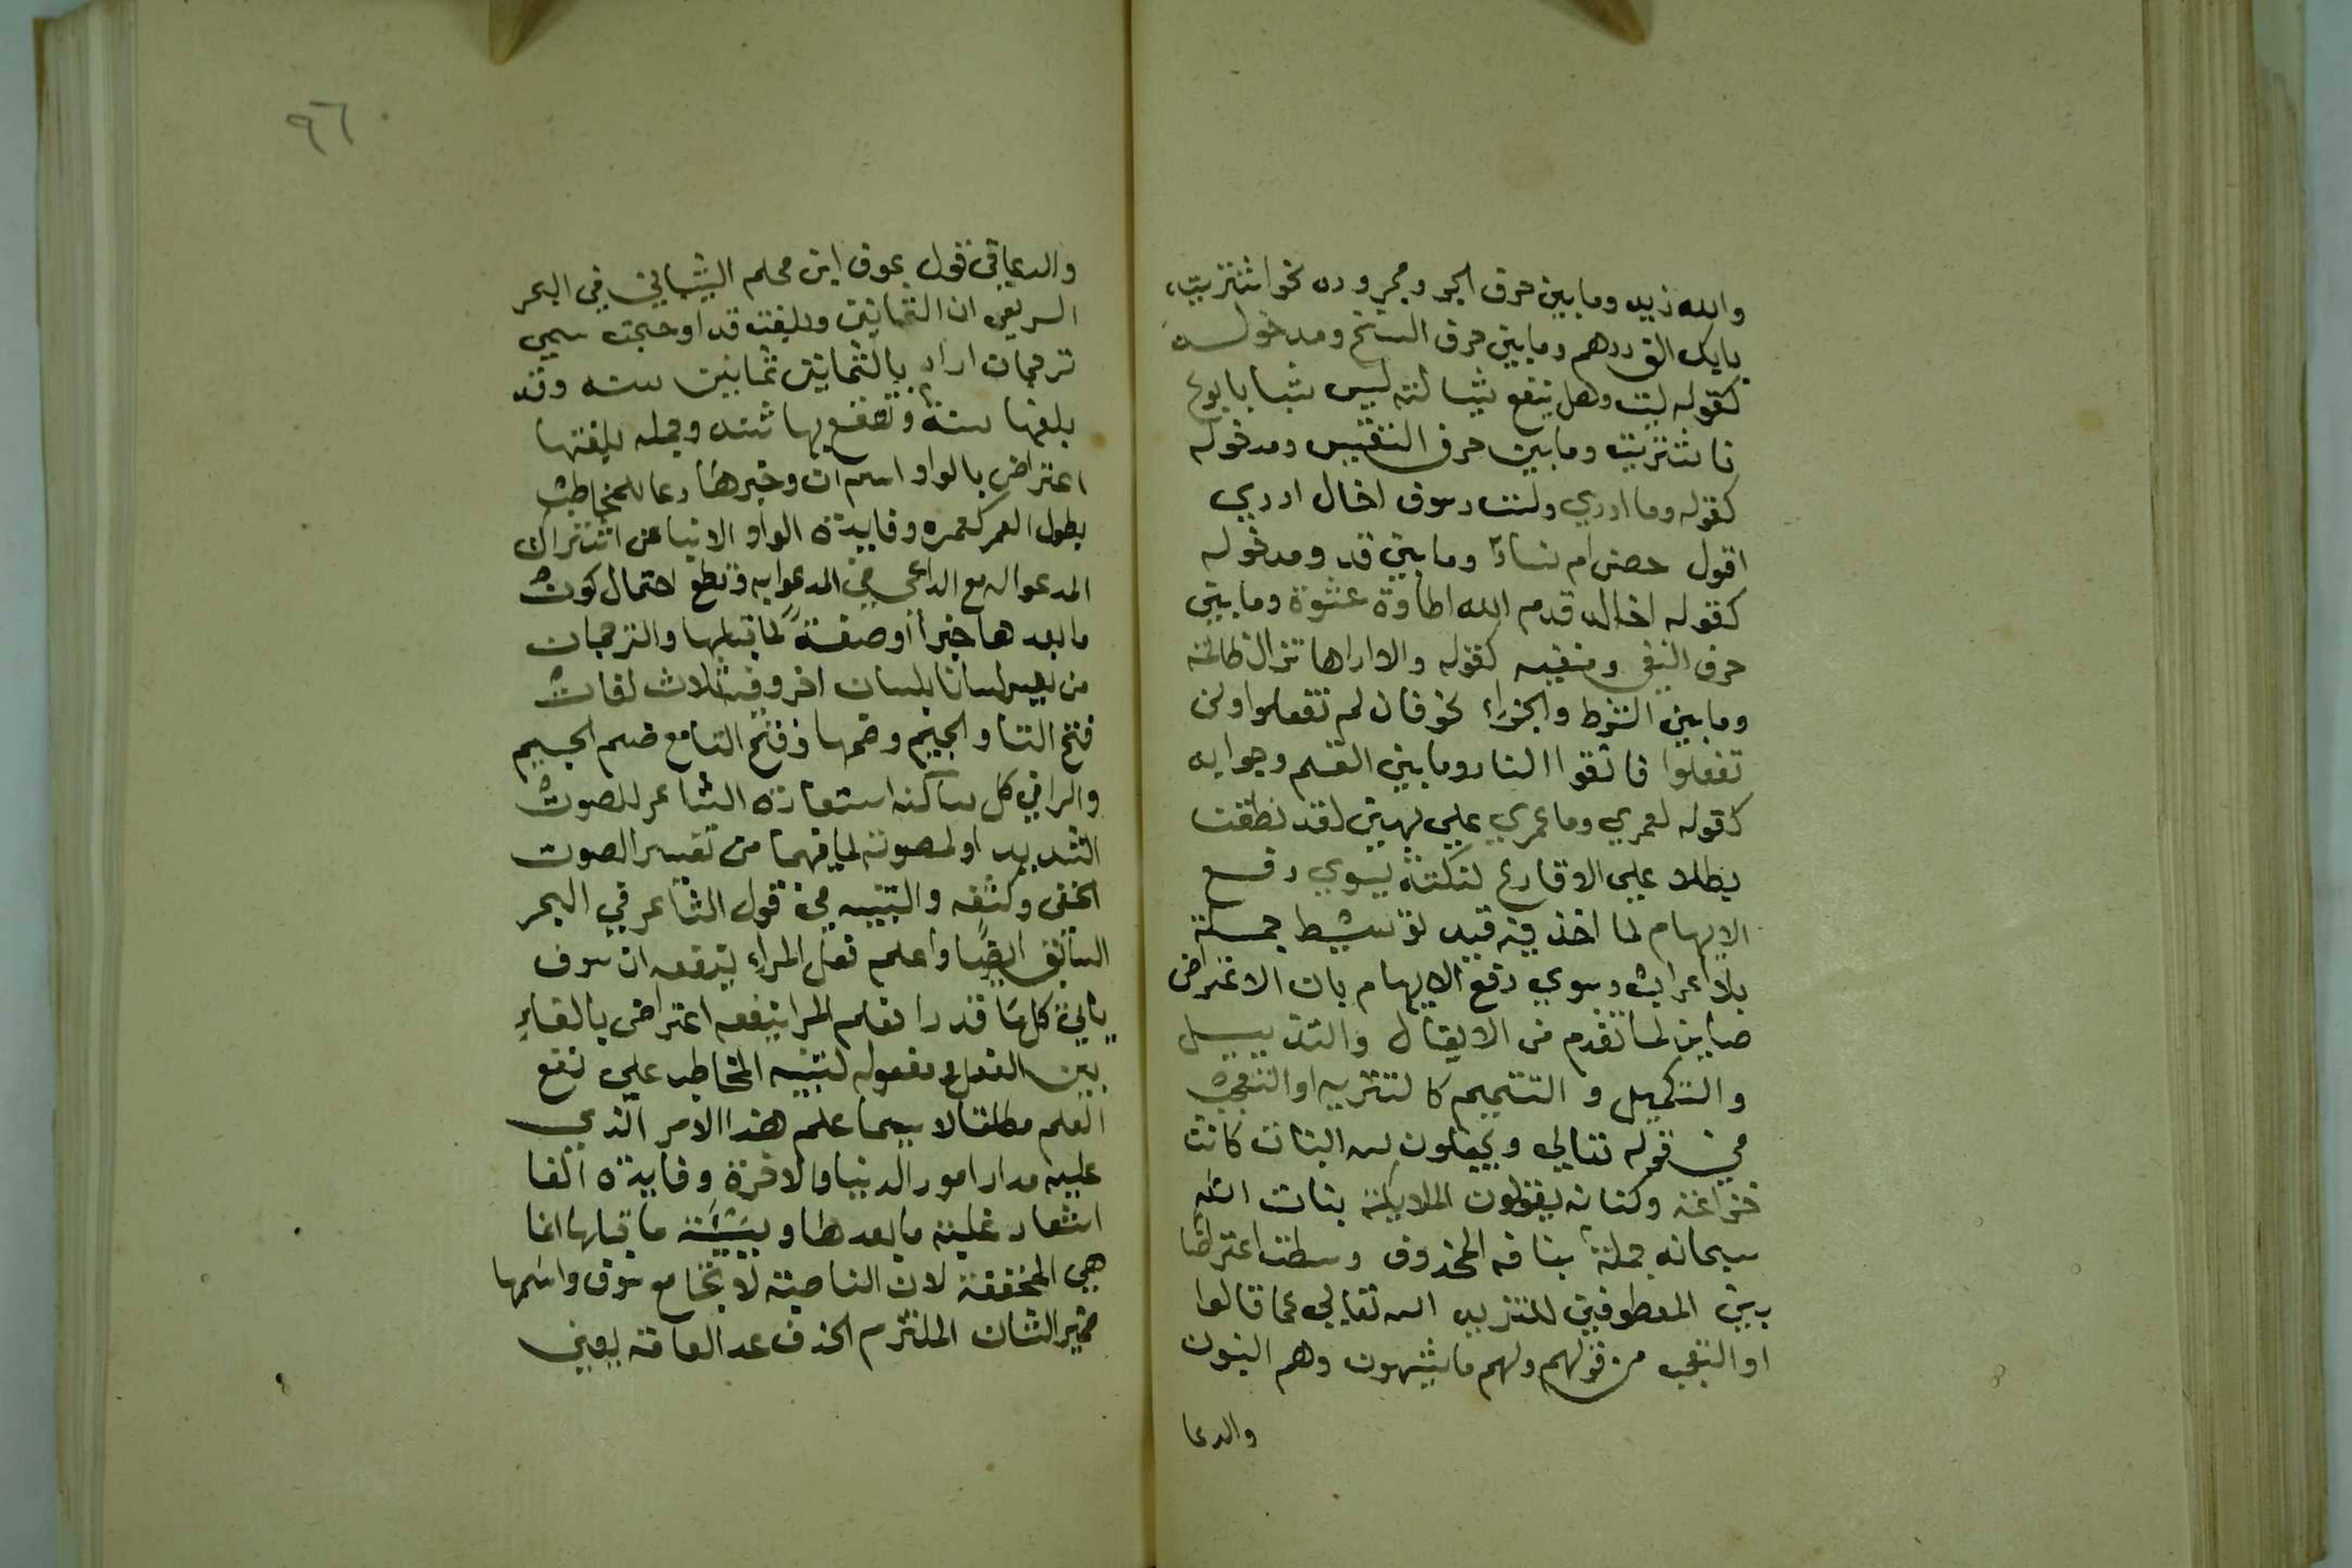 والله زيد وما بين حرف الجر ومجروره نحو اشتريت
بايك الف درهم وما بين حرف النسخ ومدخوله
كقوله ليت وهل ينفع شيئا ليته ليس شبابا بوع
فاشتريت وما بين حرف التنفيس ومدخوله
كقوله وما ادري ولست وسوف اخال ادري
اقول حصن ام نساءً وما بين قد ومدخوله
كقوله اخالد قدم الله اطاوة عشوة وما بين
حرف النفي ومنفيه كقوله والا اراها تزال ظالمة
وما بين الشرط والجزاء نحو فان لم تفعلوا ولن
تفعلوا فاتقوا النار وما بين القسم وجوابه
كقوله لعمري وما عمري علي بهين لقد نطقت
بطلا علي الاقارع لنكتة يسوي دفع
الايهام لما اخذ فيه قيد توسيط جملة
بلا اعراب وسوي دفع الايهام بان الاعتراض
مباين لما تقدم من الايغال والتذييل
والتكميل و التتميم كالتنزيه او التعجب
في قوله تعالي ويجعلون لله البنات كانت
خزاعة وكنانه يقولون الملايكة بنات الله
سبحانه جملة بنافه المحذوف وسطت اعتراضا
بين المعطوفين للتنزيه الله تعالي عما قالوا
او التعجب من قولهم ولهم ما يشتهون وهم البنون
والدعا
٩٦
والدعا في قول عوف ابن محلم الشيباني في البحر
السريع ان الثمانين وبلغت قد احوجت سمعي
ترجمان اراد بالثمانين ثمانين سنه وقد
بلغها سنة وتقعقع بها شنه وجمله بلغتها
اعتراض بالواو اسم ان وخبرها دعا للمخاطب
بطول العمر كعمره وفايدة الواو الانبا عن اشتراك
المدعو له مع الداعي في المدعوا به وقطع احتمال كون
ما بعدها خبراً أو صفةً لما قبلها والترجمان
من يفسر لسانا بلسان اخر وفيه ثلاث لغات
فتح التا والجيم وضمها وفتح التا مع ضم الجيم
والرا في كل ساكنه استعاره الشاعر للصوت
الشديد او لمصوته لما فيهما من تفسير الصوت
الخفي وكشفه والتنبيه في قول الشاعر في البحر
السابق ايضًا واعلم فعلم المراء ينفعه ان سوف
ياتي كل ما قدرا فعلم المرا ينفعه اعتراض بالفاء
بين الفعل ومفعوله لتنبيه المخاطب علي نفع
العلم مطلقا لا سيما علم هذا الامر الذي
عليه مدار امور الدنيا والاخرة وفايدة الفا
اشعار علية ما بعدها و ما قبلها انما
هي المخففة لان الناصبة لا تجامع سوف واسمها
ضمير الشان الملتزم الحذف عد العامة يعني